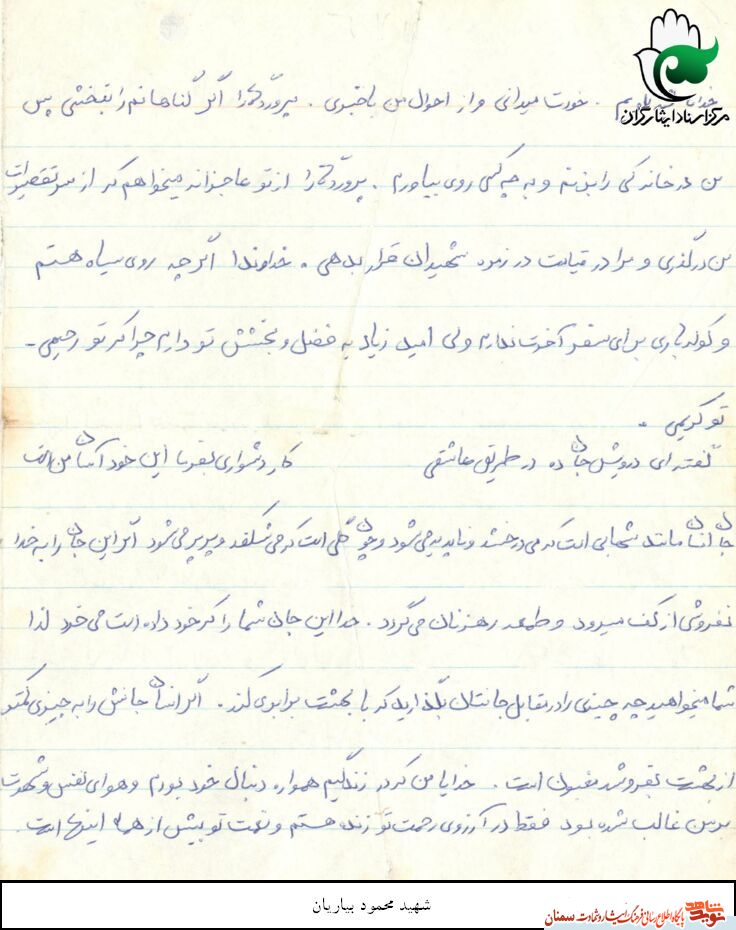 مرکز اسناد ایثارگران
خودت میدانی و از احوال من باخبری . پروردگارا اگر گناهانم را نبخشی پس
من در خانه کی را بزنم و به چه کسی روی بیاورم . پروردگارا از تو عاجزانه میخواهم که از سر تقصیرات
من درگذری و مرا در قیامت در زمره شهیدان قرار بدهی . خداوندا اگر چه روی سیاه هستم
و کوله باری برای سفر آخرت ندارم ولی امید زیاد به فضل و بخشش تو دارم چرا که تو رحیمی -
تو کریمی .
گفته ای درویش جان ده در طریق عاشقی کار دشواری بفرما این خود آسان من است
جان انسان مانند شهابی است که می درخشد و ناپدید می شود و چون گلی است که می شکفد و پرپر می شود اگر این جان را به خدا
نفروشی از کف میرود و طعمه رهزنان می گردد . خدا این جان شما را که خود داده است می خرد لذا
شما میخواهید چه چیزی را در مقابل جانتان بگذارید که با بهشت برابری کند . اگر انسان جانش را به چیزی کمتر
از بهشت بفروشد مغبون است . خدایا من که در زندگیم همواره دنبال خود بودم و هوای نفس و شهوت
بر من غالب شده بود فقط در آرزوی رحمت تو زنده هستم و نعمت تو بیش از همه اینها است .
شهید محمود بیاریان
نوید شاهد
پایگاه اطلاع رسانی فرهنگ ایثار و شهادت سمنان